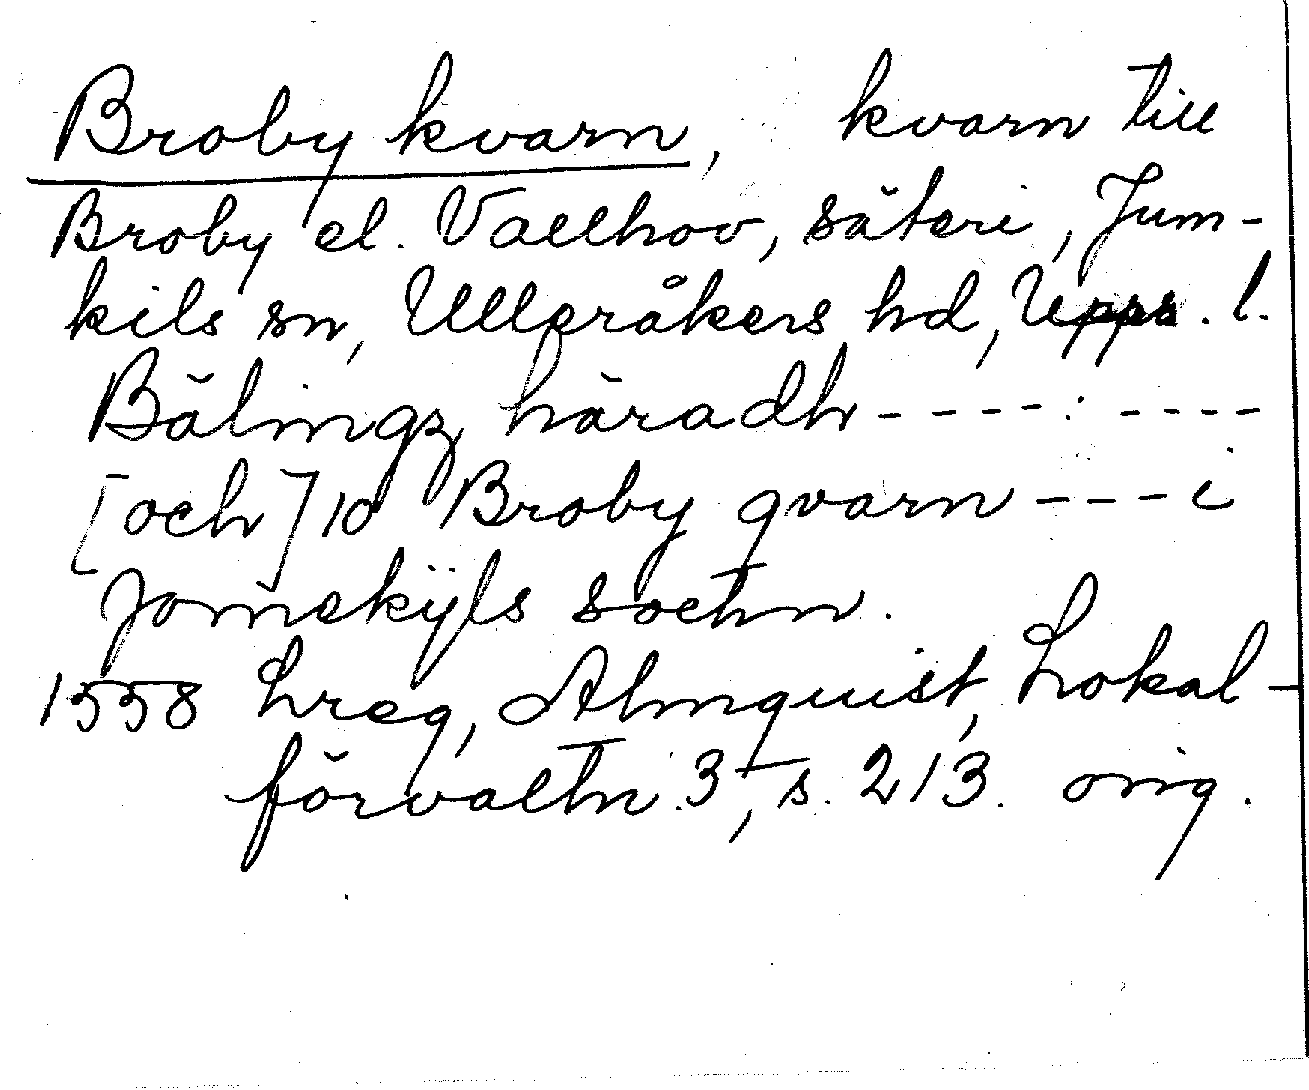 Broby kvarn, kvarn till
Broby el. Vallhov, säteri, Jum-
kils sn, Ulleråkers hd, Upps. l.
Bälingz häradh ----:----
[och] 10 Broby qvarn --- i
Jomekÿls sochn.
1558 Lreg, Almquist, Lokal-
förvaltn. 3, s. 213. orig.